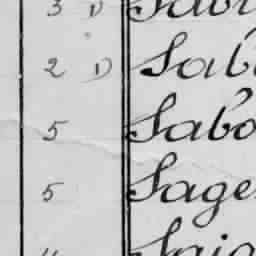 3 D Sabi
2 D Sab
5 Sabo
5 Sage